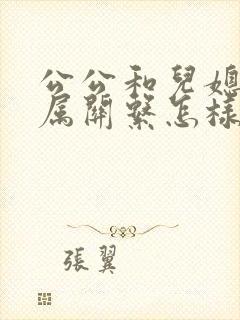 公公和兒媳
屬關繫怎樣
張翼